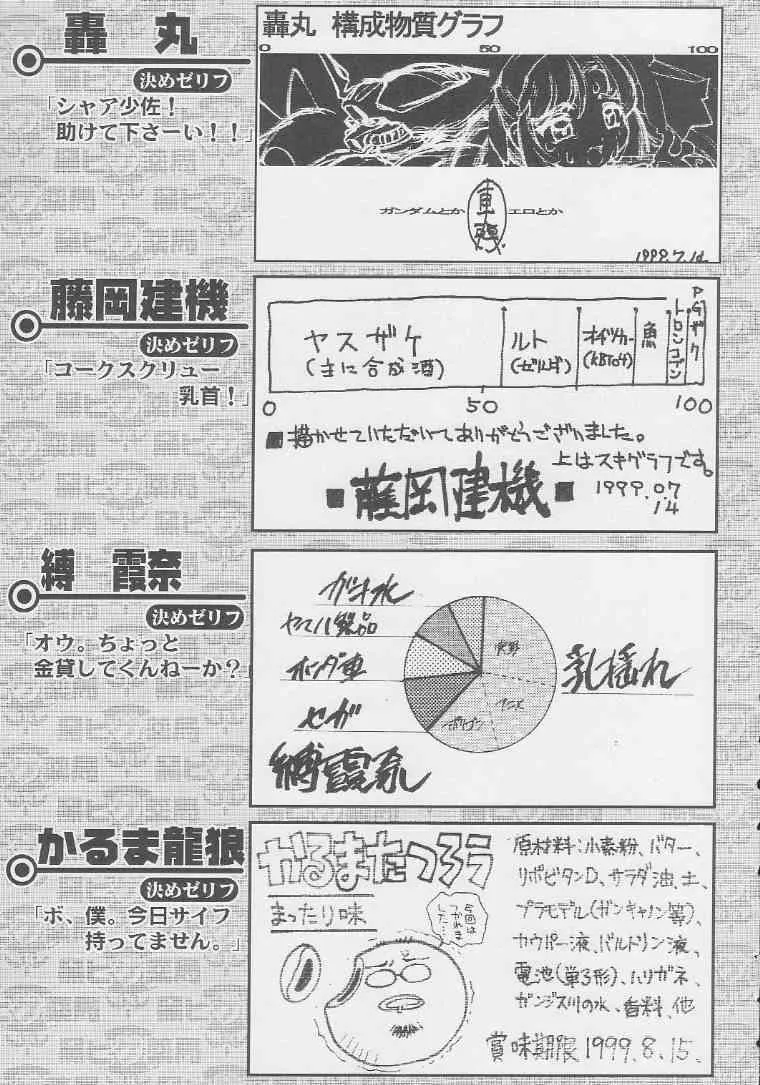 轟丸
決めゼリフ
「シャア少佐！
助けて下さーい！！」
轟丸 構成物質グラフ
0 50 100
ガンダムとか
エロとか
1999.7.14
藤岡建機
決めゼリフ
「コークスクリュー
乳首！」
ヤスザケ
(主に合成酒)
ルト
魚
PGザク
0 50 100
■描かせていただいてありがとうございました。
上はスキグラフです。
■藤岡建機■
1999.07
14
縛霞奈
決めゼリフ
「オウ。ちょっと
金貸してくんねーか？」
ヤマハ製品
ホンダ車
セガ
実野
アニメ
ポリゴン
乳揺れ
縛霞奈
かるま龍狼
決めゼリフ
「ボ、僕。今日サイフ
持ってません。」
かるまたつろう
まったり味
今回は
つかれま
した…
原材料：小麦粉、バター、
リポビタンD、サラダ油、土、
プラモデル(ガンキャノン等)、
カウパー液、バルトリン液、
電池(単3形)、ハリガネ、
ガンジス川の水、香料、他
賞味期限1999.8.15.